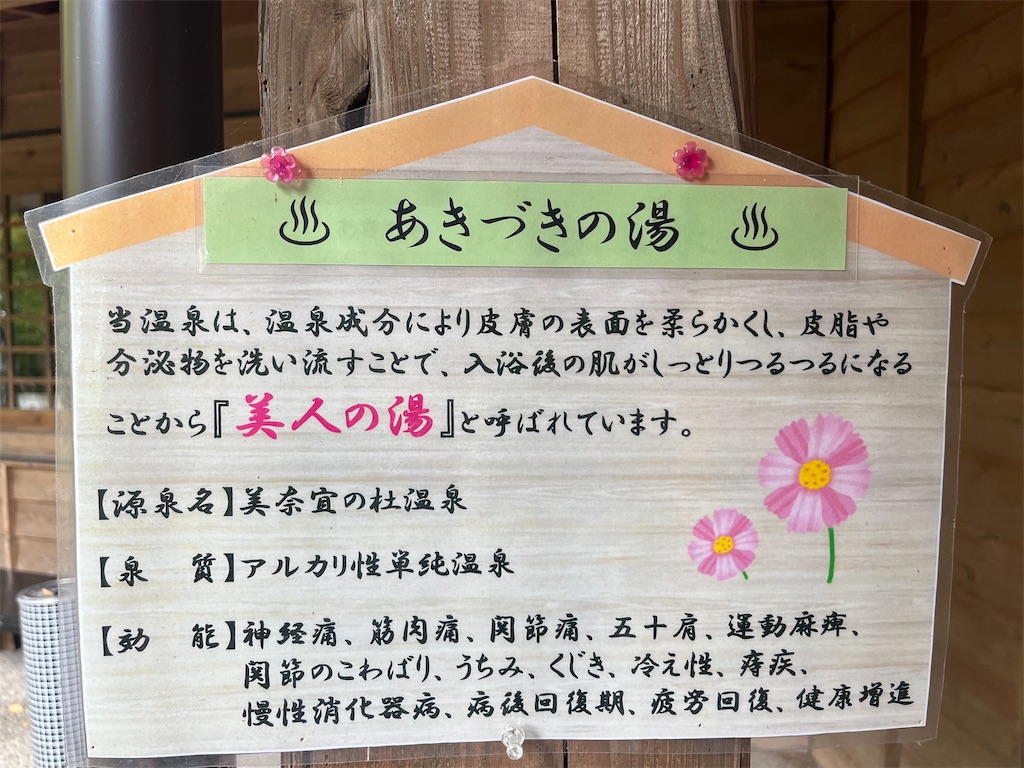 ♨ あきづきの湯 ♨
当温泉は、温泉成分により皮膚の表面を柔らかくし、皮脂や
分泌物を洗い流すことで、入浴後の肌がしっとりつるつるになる
ことから『美人の湯』と呼ばれています。
【源泉名】美奈宜の杜温泉
【泉　質】アルカリ性単純温泉
【効　能】神経痛、筋肉痛、関節痛、五十肩、運動麻痺、
関節のこわばり、うちみ、くじき、冷え性、痔疾、
慢性消化器病、病後回復期、疲労回復、健康増進